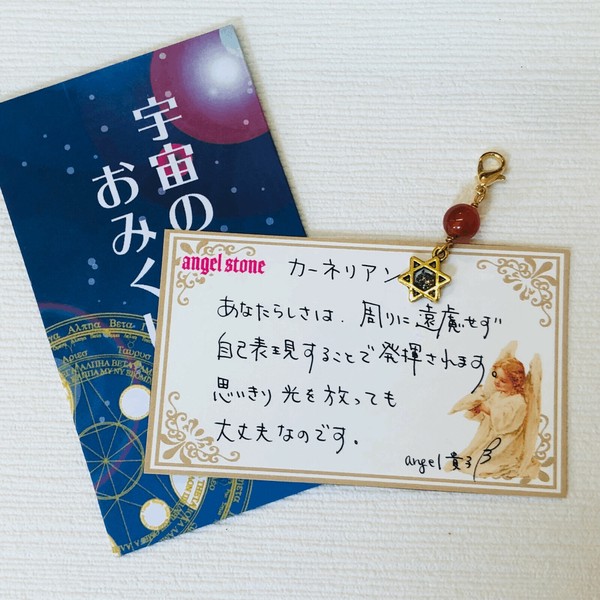 宇宙の
おみく
angel stone
カーネリアン
あなたらしさは、周りに遠慮せず
自己表現することで発揮されます。
思いきり光を放っても
大丈夫なのです。
angel 貴子
Alpha Beta
Aries
Taurus